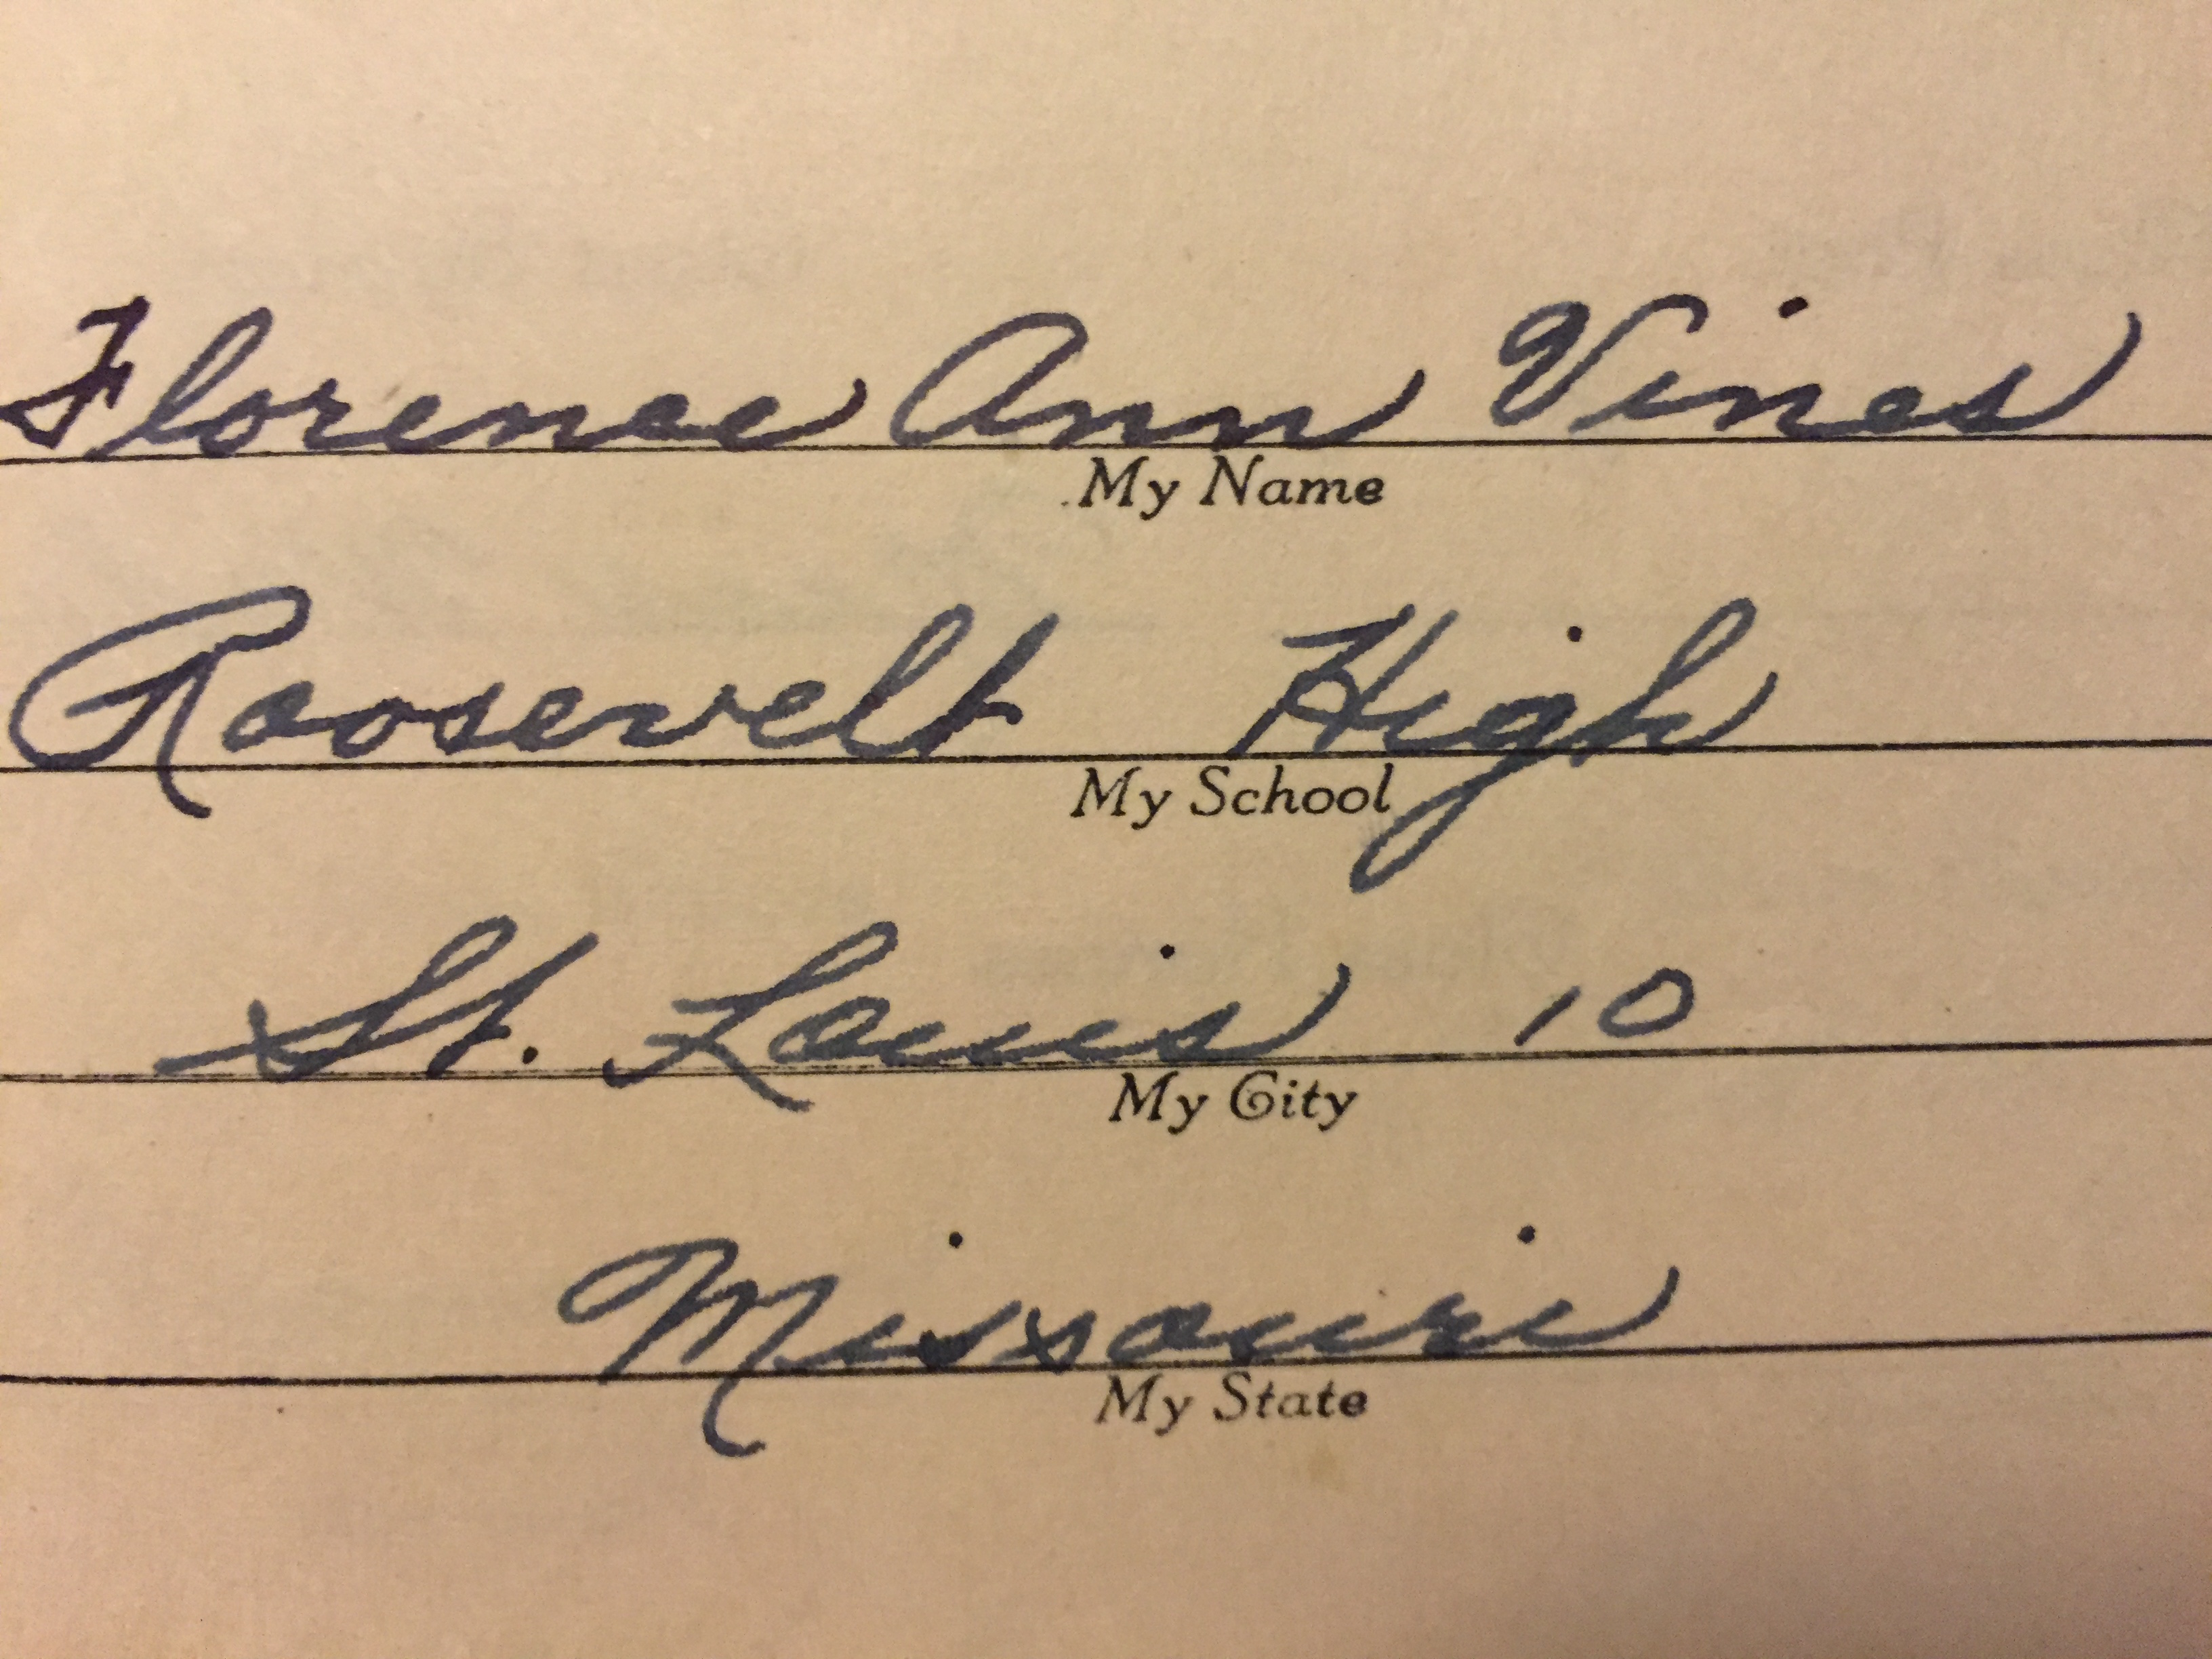 Florence Ann Vines
My Name
Roosevelt High
My School
St. Louis 10
My City
Missouri
My State